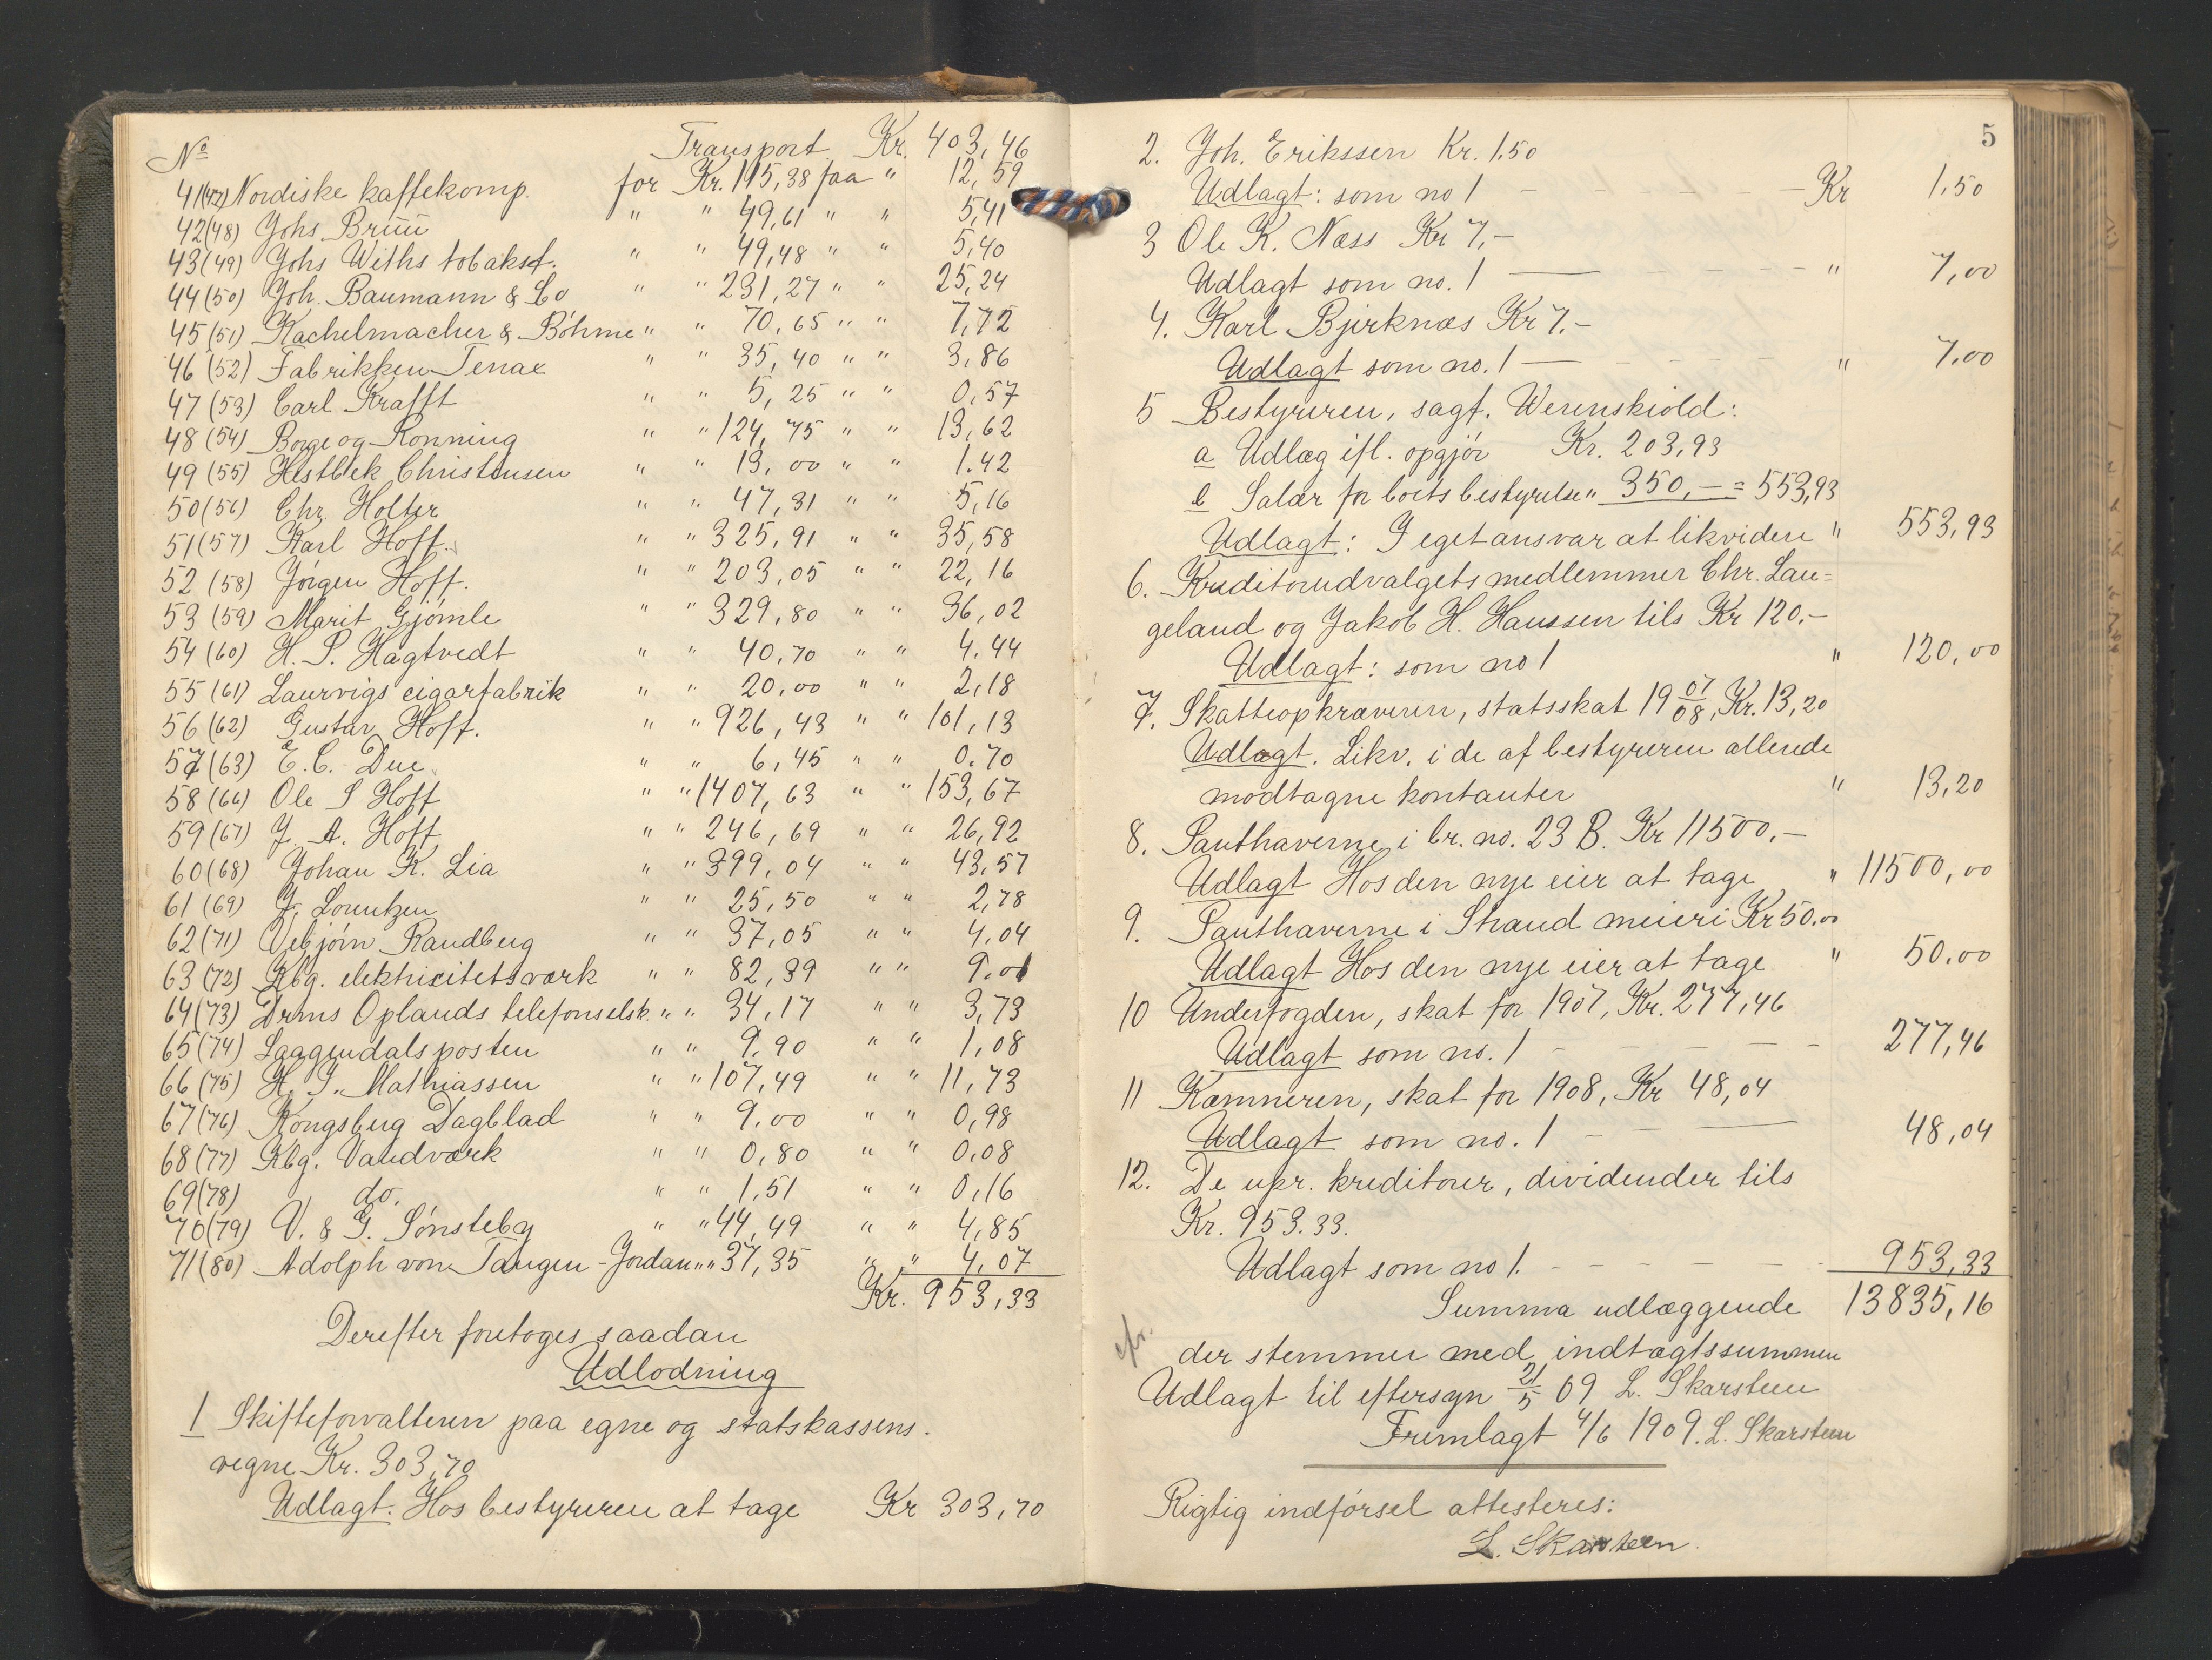 No Transport Kr. 403,46
41(47) Nordiske kaffekomp. for Kr. 115,38 faa " 12,59
42(48) Johs Bruu " " 49,61 " " 5,41
43(49) Johs Withs tobaksf. " " 49,48 " " 5,40
44(50) Joh. Baumann & Co " " 231,27 " " 25,24
45(51) Kachelmacher & Böhme " " 70,65 " " 7,72
46(52) Fabrikken Tenax " " 35,40 " " 3,86
47(53) Carl Krafft " " 5,25 " " 0,57
48(54) Borge og Ronning " " 124,75 " " 13,62
49(55) Hestbek Christensen " " 13,00 " " 1.42
50(56) Chr. Holter " " 47,31 " " 5,16
51(57) Karl Hoff. " " 325,91 " " 35,58
52(58) Jörgen Hoff. " " 203,05 " " 22,16
53(59) Marit Gjömle " " 329,80 " " 36,02
54(60) H. P. Hagtvedt " " 40,70 " " 4,44
55(61) Laurvigs cigarfabrik " " 20,00 " " 2,18
56(62) Gustav Hoff. " " 926,43 " " 101,13
57(63) E. C. Due " " 6,45 " " 0,70
58(66) Ole S Hoff " " 1407,63 " " 153,67
59(67) J. A. Hoff " " 246,69 " " 26,92
60(68) Johan K. Lia " " 399,04 " " 43,57
61(69) J. Lorentzen " " 25,50 " " 2,78
62(71) Vebjörn Randberg " " 37,05 " " 4,04
63(72) Kbg. elektricitetsværk " " 82,39 " " 9,01
64(73) Drms Oplands telefonselsk. " " 34,17 " " 3,73
65(74) Laagendalsposten " " 9,90 " " 1,08
66(75) H. J. Mathiassen " " 107,49 " " 11,73
67(76) Kongsberg Dagblad " " 9,00 " " 0,98
68(77) Kbg. Vandværk " " 0,80 " " 0,08
69(78) do. " " 1,51 " " 0,16
70(79) V. & G. Sönsteby " " 44,49 " " 4,85
71(80) Adolph von Tangen-Jordan " " 37,35 " " 4,07
Kr. 953,33
Derefter foretoges saadan
Udlodning
1 Skifteforvalteren paa egne og statskassens
vegne Kr. 303,70
Udlagt. Hos bestyreren at tage Kr 303,70
5
2. Joh. Erikssen Kr. 1.50
Udlagt: som no 1 - - - - Kr 1.50
3 Ole K. Næss Kr 7,-
Udlagt som no. 1 - - - - " 7,00
4. Karl Bjerknæs Kr 7.-
Udlagt som no. 1 - - - - " 7.00
5 Bestyreren, sagf. Werenskiold:
a Udlæg ifl. opgjör Kr. 203,93
b Salær for boets bestyrelse " 350,- = 553,93
Udlagt: I eget ansvar at likvidere " 553,93
6. Kreditorudvalgets medlemmer Chr. Lan=
geland og Jakob H. Hanssen tils Kr 120.-
Udlagt: som no 1 " 120,00
7. Skatteopkræveren, statsskat 19 07/08, Kr. 13,20
Udlagt. Likv. i de af bestyreren allerede
modtagne kontanter " 13,20
8. Panthaverne i br. no. 23 B. Kr 11500,-
Udlagt Hos den nye eier at tage " 11500,00
9. Panthaverne i Strand meieri Kr 50.00
Udlagt Hos den nye eier at tage " 50.00
10 Underfogden, skat for 1907, Kr. 277,46
Udlagt som no. 1 - - - - 277,46
11 Kæmneren, skat for 1908, Kr 48,04
Udlagt som no. 1 - - 48,04
12. De upr. kreditorer, dividender tils
Kr. 953.33.
Udlagt som no 1. - - - - 953,33
Summa udlæggende 13835,16
cfr.
der stemmer med indtægtssummen
Udlagt til eftersyn 21/5 09 L. Skarsteen
Fremlagt 4/6 1909. L. Skarsteen
Rigtig indförsel attesteres:
L. Skarsteen.